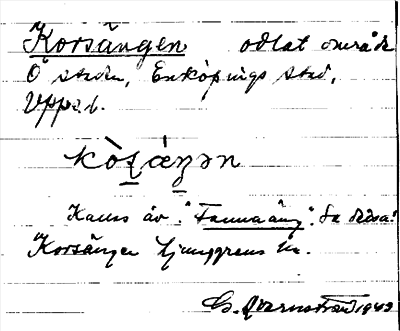 Korsängen odlat område
Ö staden, Enköpings stad,
Uppl.
kòsäŋən
Kallas äv. "Fannaäng". Se dessa!
Korsängen Ljunggrens kr.
G. Warnström 1943